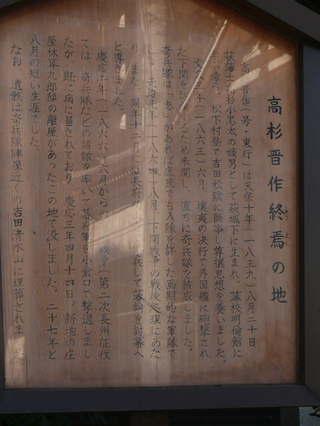 高杉晋作終焉の地
高杉晋作(号・東行)は天保十年(一八三九)八月二十日
萩藩士高杉小忠太の嫡男として萩城下に生まれ、藩校明倫館に
学ぶ傍ら、松下村塾で吉田松陰に師事し尊攘思想を養いました。
文久三年(一八六三)六月、攘夷の決行で外国艦に砲撃され
た下関を
するため来関し、直ちに奇兵隊を結成しました。
奇兵隊は
があれば庶民でも入隊を許した画期的な軍隊で
した。
年(一八六四)八月、下関戦争の戦後処理にあた
り、また、同年十二月には長府
挙兵して藩論を討幕へ
と導きました。
慶応二年(一八六六)六月からの
戦争(第二次長州征伐)
では、奇兵隊などの諸隊を率いて幕府軍を小倉口で撃退しまし
たが、既に病に冒されており、慶応三年四月十四日、新地の庄
屋林算九郎邸の離屋があったこの地で没しました。二十七年と
八月の短い生涯でした。
なお、遺骸は奇兵隊陣屋近くの吉田清水山に埋葬されま